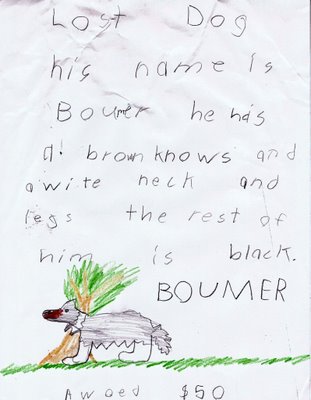 Lost Dog
his name is
Boumer he has
a brown knows and
a wite neck and
legs the rest of
him is black.
BOUMER
Awoed $50